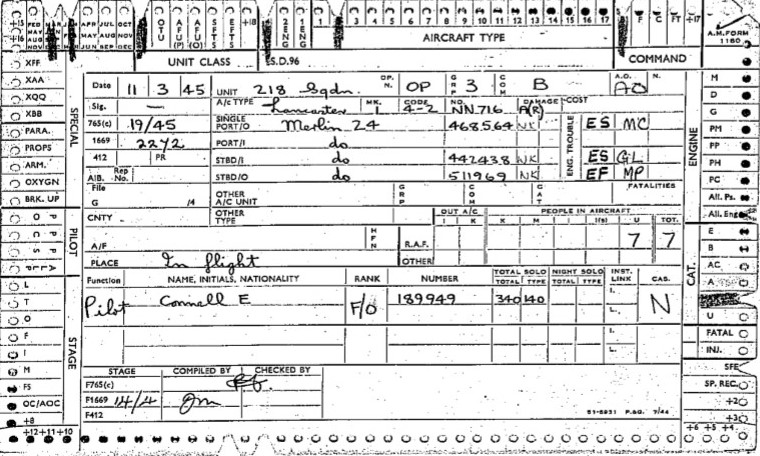 +15 FEB MAR APR JUL OCT OTU AFU (P) AFU (O) SFTS EFTS +18 2 ENG 1 ENG 1 2 3 4 5 6 7 8 9 10 11 12 13 14 15 16 17 B F C FT +17 A.M. FORM 1180
+16 MAY AUG NOV MAR JUN SEP DEC AIRCRAFT TYPE
UNIT CLASS S.D.96 COMMAND
XFF
XAA
XQQ
XBB
PARA.
PROPS
ARM.
OXYGEN
BRK. UP
SPECIAL
PILOT
STAGE
L
T
O
F
I
M
F5
OC/AOC
+8
+12+11+10
Date 11 3 45 UNIT 218 Sqdn. OP. N. OP GRP 3 COM B A.O. AO N.
Sig. — A/C TYPE Lancaster MK. I CODE 4-2 NO. NN716 DAMAGE A(R) COST
765(c) 19/45 SINGLE PORT/O Merlin 24 468564 NK ENG. TROUBLE ES MC
1669 2272 PORT/I do
412 PR STBD/I do 442438 NK ES GL
A.I.B. Rep No. STBD/O do 511969 NK EF MP
File G /4 OTHER A/C UNIT GRP COM CAT FATALITIES
CNTY. OTHER TYPE OUT A/C I K PEOPLE IN AIRCRAFT K M I I(s) U TOT.
A/F HFN R.A.F. 7 7
PLACE In flight OTHER
Function NAME, INITIALS, NATIONALITY RANK NUMBER TOTAL SOLO TOTAL TYPE NIGHT SOLO TOTAL TYPE INST. LINK CAS.
Pilot Connell E F/O 189949 340 140 I. L. N
I.
L.
STAGE COMPILED BY CHECKED BY
F765(c)
F1669 14/4
F412 51-6831 P.&G. 7/44
ENGINE
M
D
G
PM
PP
PH
PC
All. Ps.
All. Eng
CAT.
E
B
AC
A
U
FATAL
INJ.
SFE
SP. REC.
+20
+30
+6 +5 +4